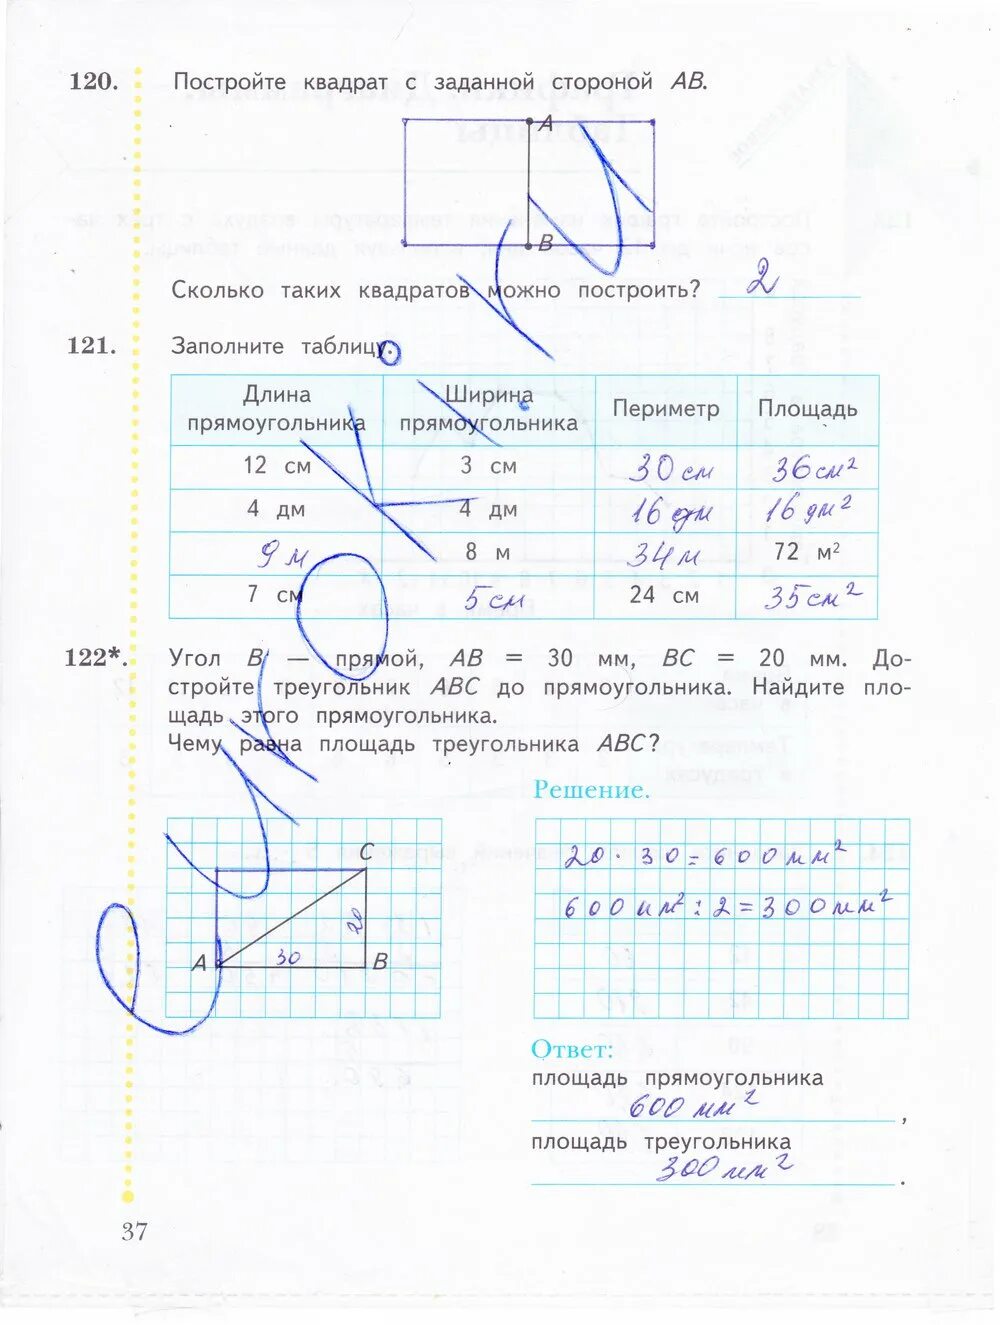 120. Постройте квадрат с заданной стороной AB.
A
B
Сколько таких квадратов можно построить? 2
121. Заполните таблицу.
Длина прямоугольника Ширина прямоугольника Периметр Площадь
12 см 3 см 30 см 36 см²
4 дм 4 дм 16 дм 16 дм²
9 м 8 м 34 м 72 м²
7 см 5 см 24 см 35 см²
122*. Угол B — прямой, AB = 30 мм, BC = 20 мм. До-
стройте треугольник ABC до прямоугольника. Найдите пло-
щадь этого прямоугольника.
Чему равна площадь треугольника ABC?
Решение.
C
20
A 30 B
20 · 30 = 600 мм²
600 мм² : 2 = 300 мм²
Ответ:
площадь прямоугольника
600 мм²,
площадь треугольника
300 мм².
37